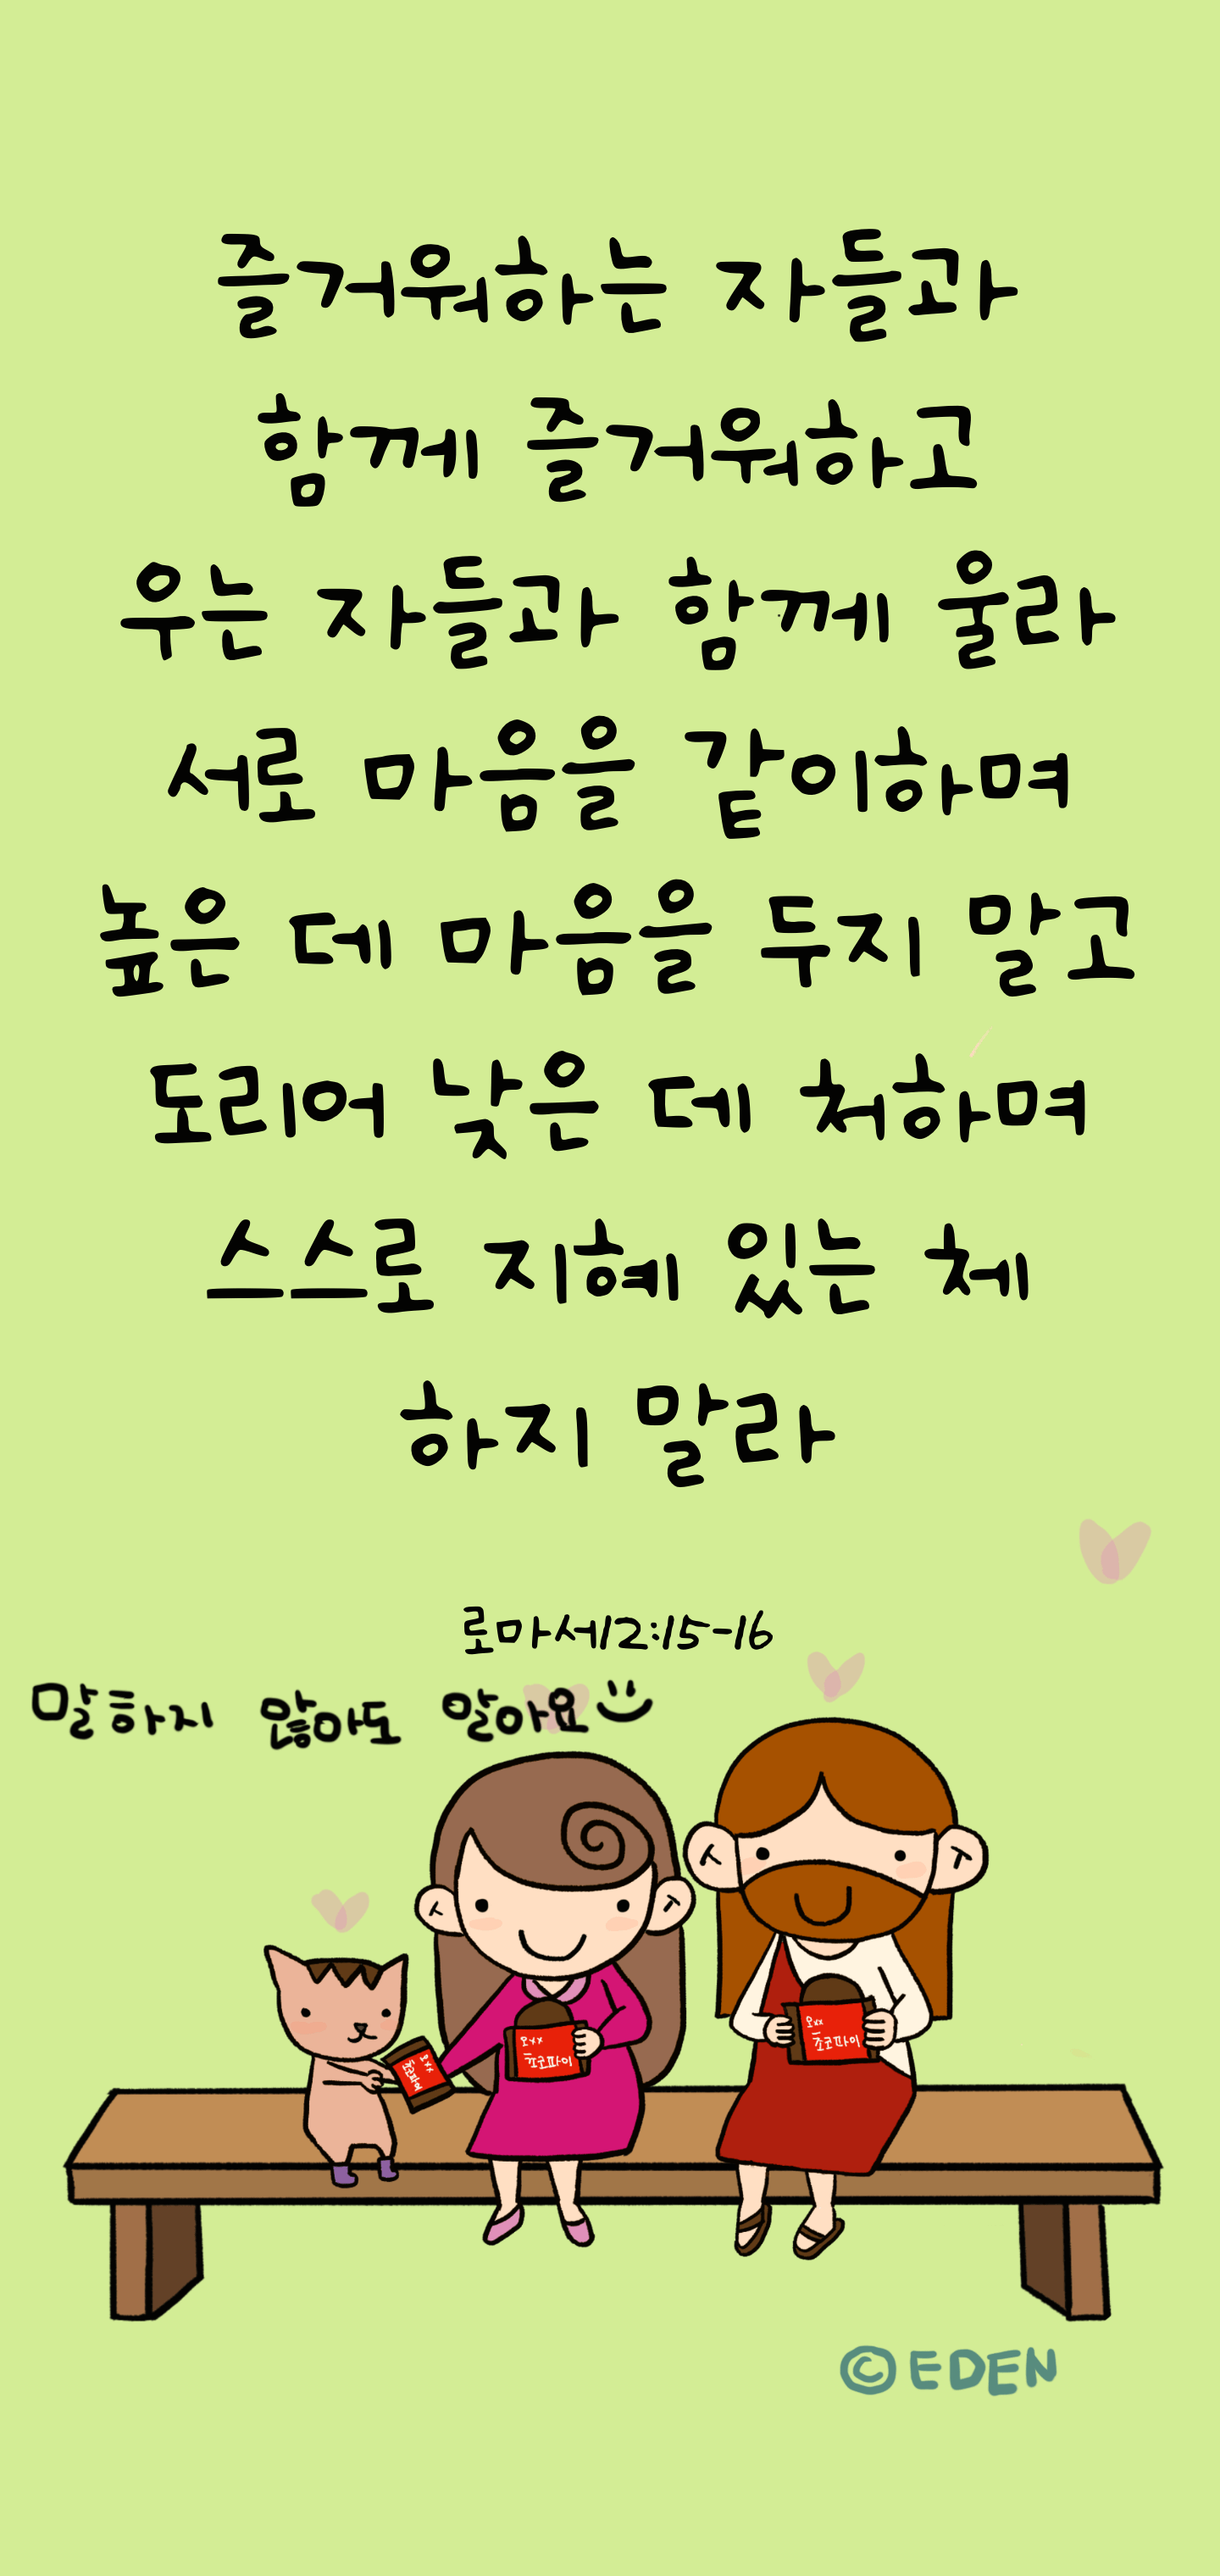 즐거워하는 자들과
함께 즐거워하고
우는 자들과 함께 울라
서로 마음을 같이하며
높은 데 마음을 두지 말고
도리어 낮은 데 처하며
스스로 지혜 있는 체
하지 말라
로마서12:15-16
말하지 않아도 알아요
오xx
초코파이
오xx
초코파이
오xx
초코파이
©EDEN